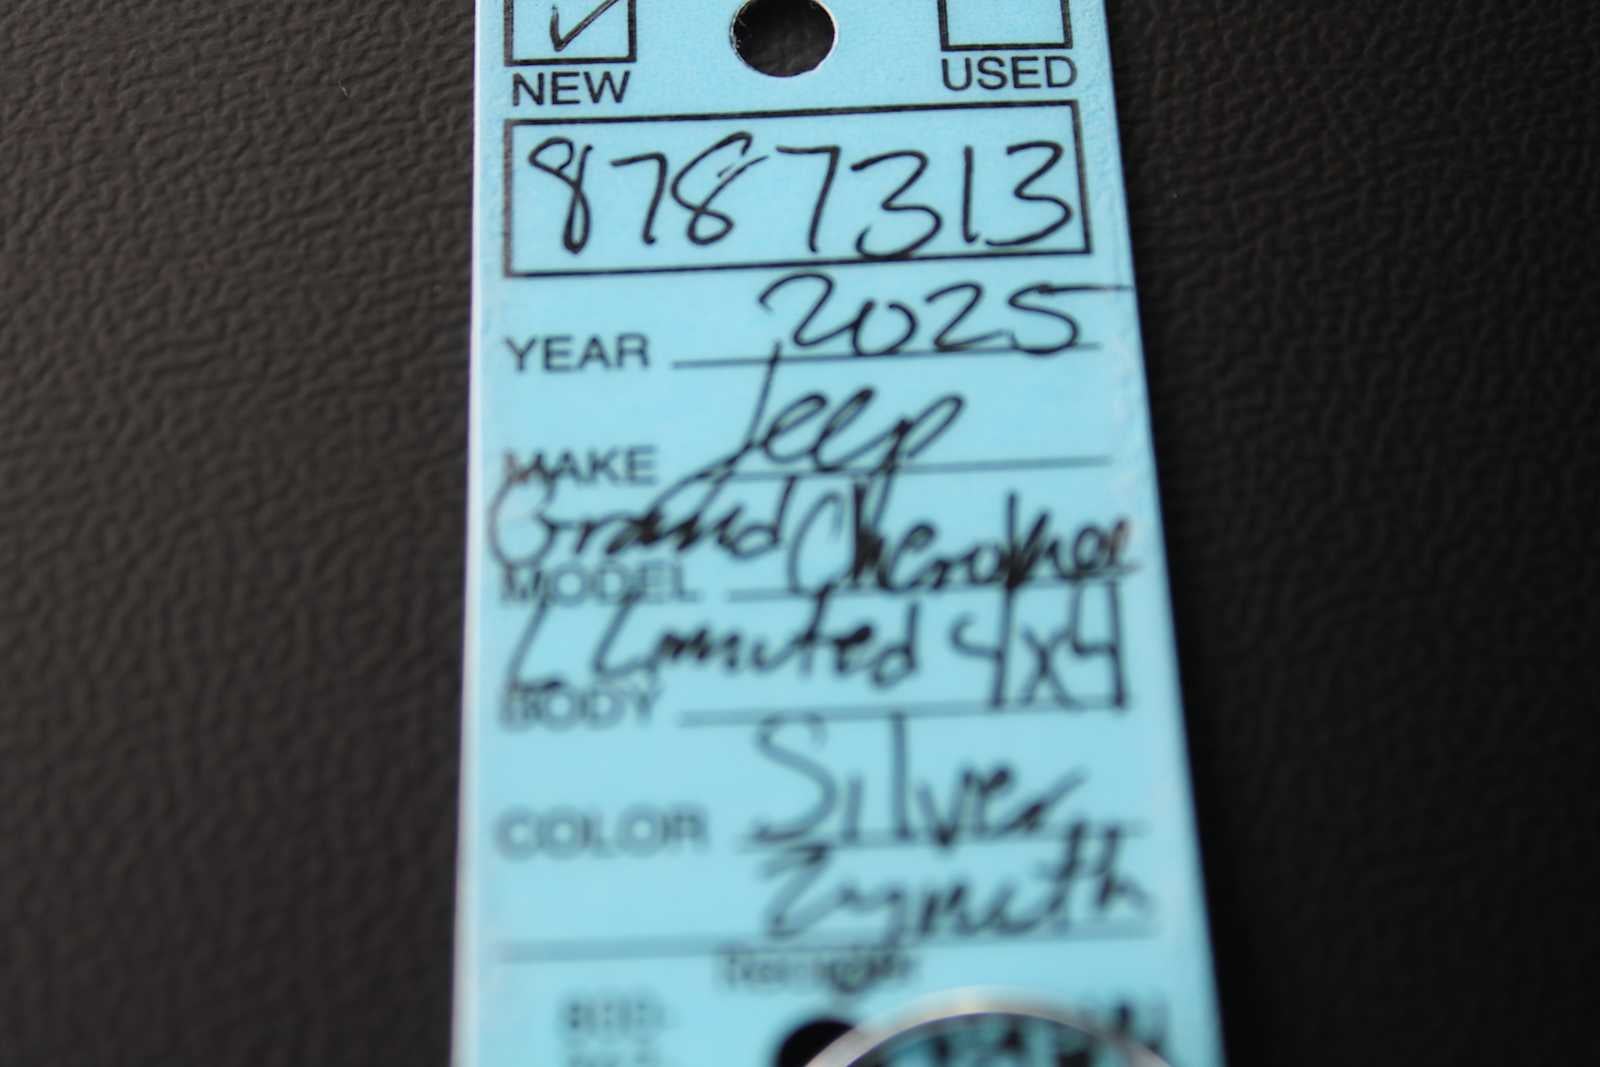 NEW USED
8787313
YEAR 2025
MAKE Jeep
Grand Cherokee
MODEL
L Limited 4x4
BODY
COLOR Silver
Zynith
800-